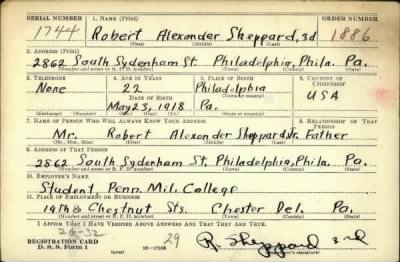 SERIAL NUMBER 1. NAME (Print) ORDER NUMBER
1744 Robert Alexander Sheppard, 3d 1886
(First) (Middle) (Last)
2. ADDRESS (Print)
2862 South Sydenham St. Philadelphia, Phila. Pa.
(Number and street or R. F. D. number) (Town) (County) (State)
3. TELEPHONE 4. AGE IN YEARS 5. PLACE OF BIRTH 6. COUNTRY OF CITIZENSHIP
None 22 Philadelphia USA
DATE OF BIRTH (Town or county)
May 23, 1918 Pa.
(Mo.) (Day) (Yr.) (State or country)
7. NAME OF PERSON WHO WILL ALWAYS KNOW YOUR ADDRESS 8. RELATIONSHIP OF THAT PERSON
Mr. Robert Alexander Sheppard, Jr. Father
(Mr., Mrs., Miss) (First) (Middle) (Last)
9. ADDRESS OF THAT PERSON
2862 South Sydenham St. Philadelphia, Phila. Pa.
(Number and street or R. F. D. number) (Town) (County) (State)
10. EMPLOYER'S NAME
Student, Penn. Mil. College
11. PLACE OF EMPLOYMENT OR BUSINESS
14th & Chestnut Sts. Chester Del. Pa.
(Number and street or R. F. D. number) (Town) (County) (State)
I AFFIRM THAT I HAVE VERIFIED ABOVE ANSWERS AND THAT THEY ARE TRUE.
REGISTRATION CARD
D. S. S. Form 1 (over) 29 R. Sheppard 3rd